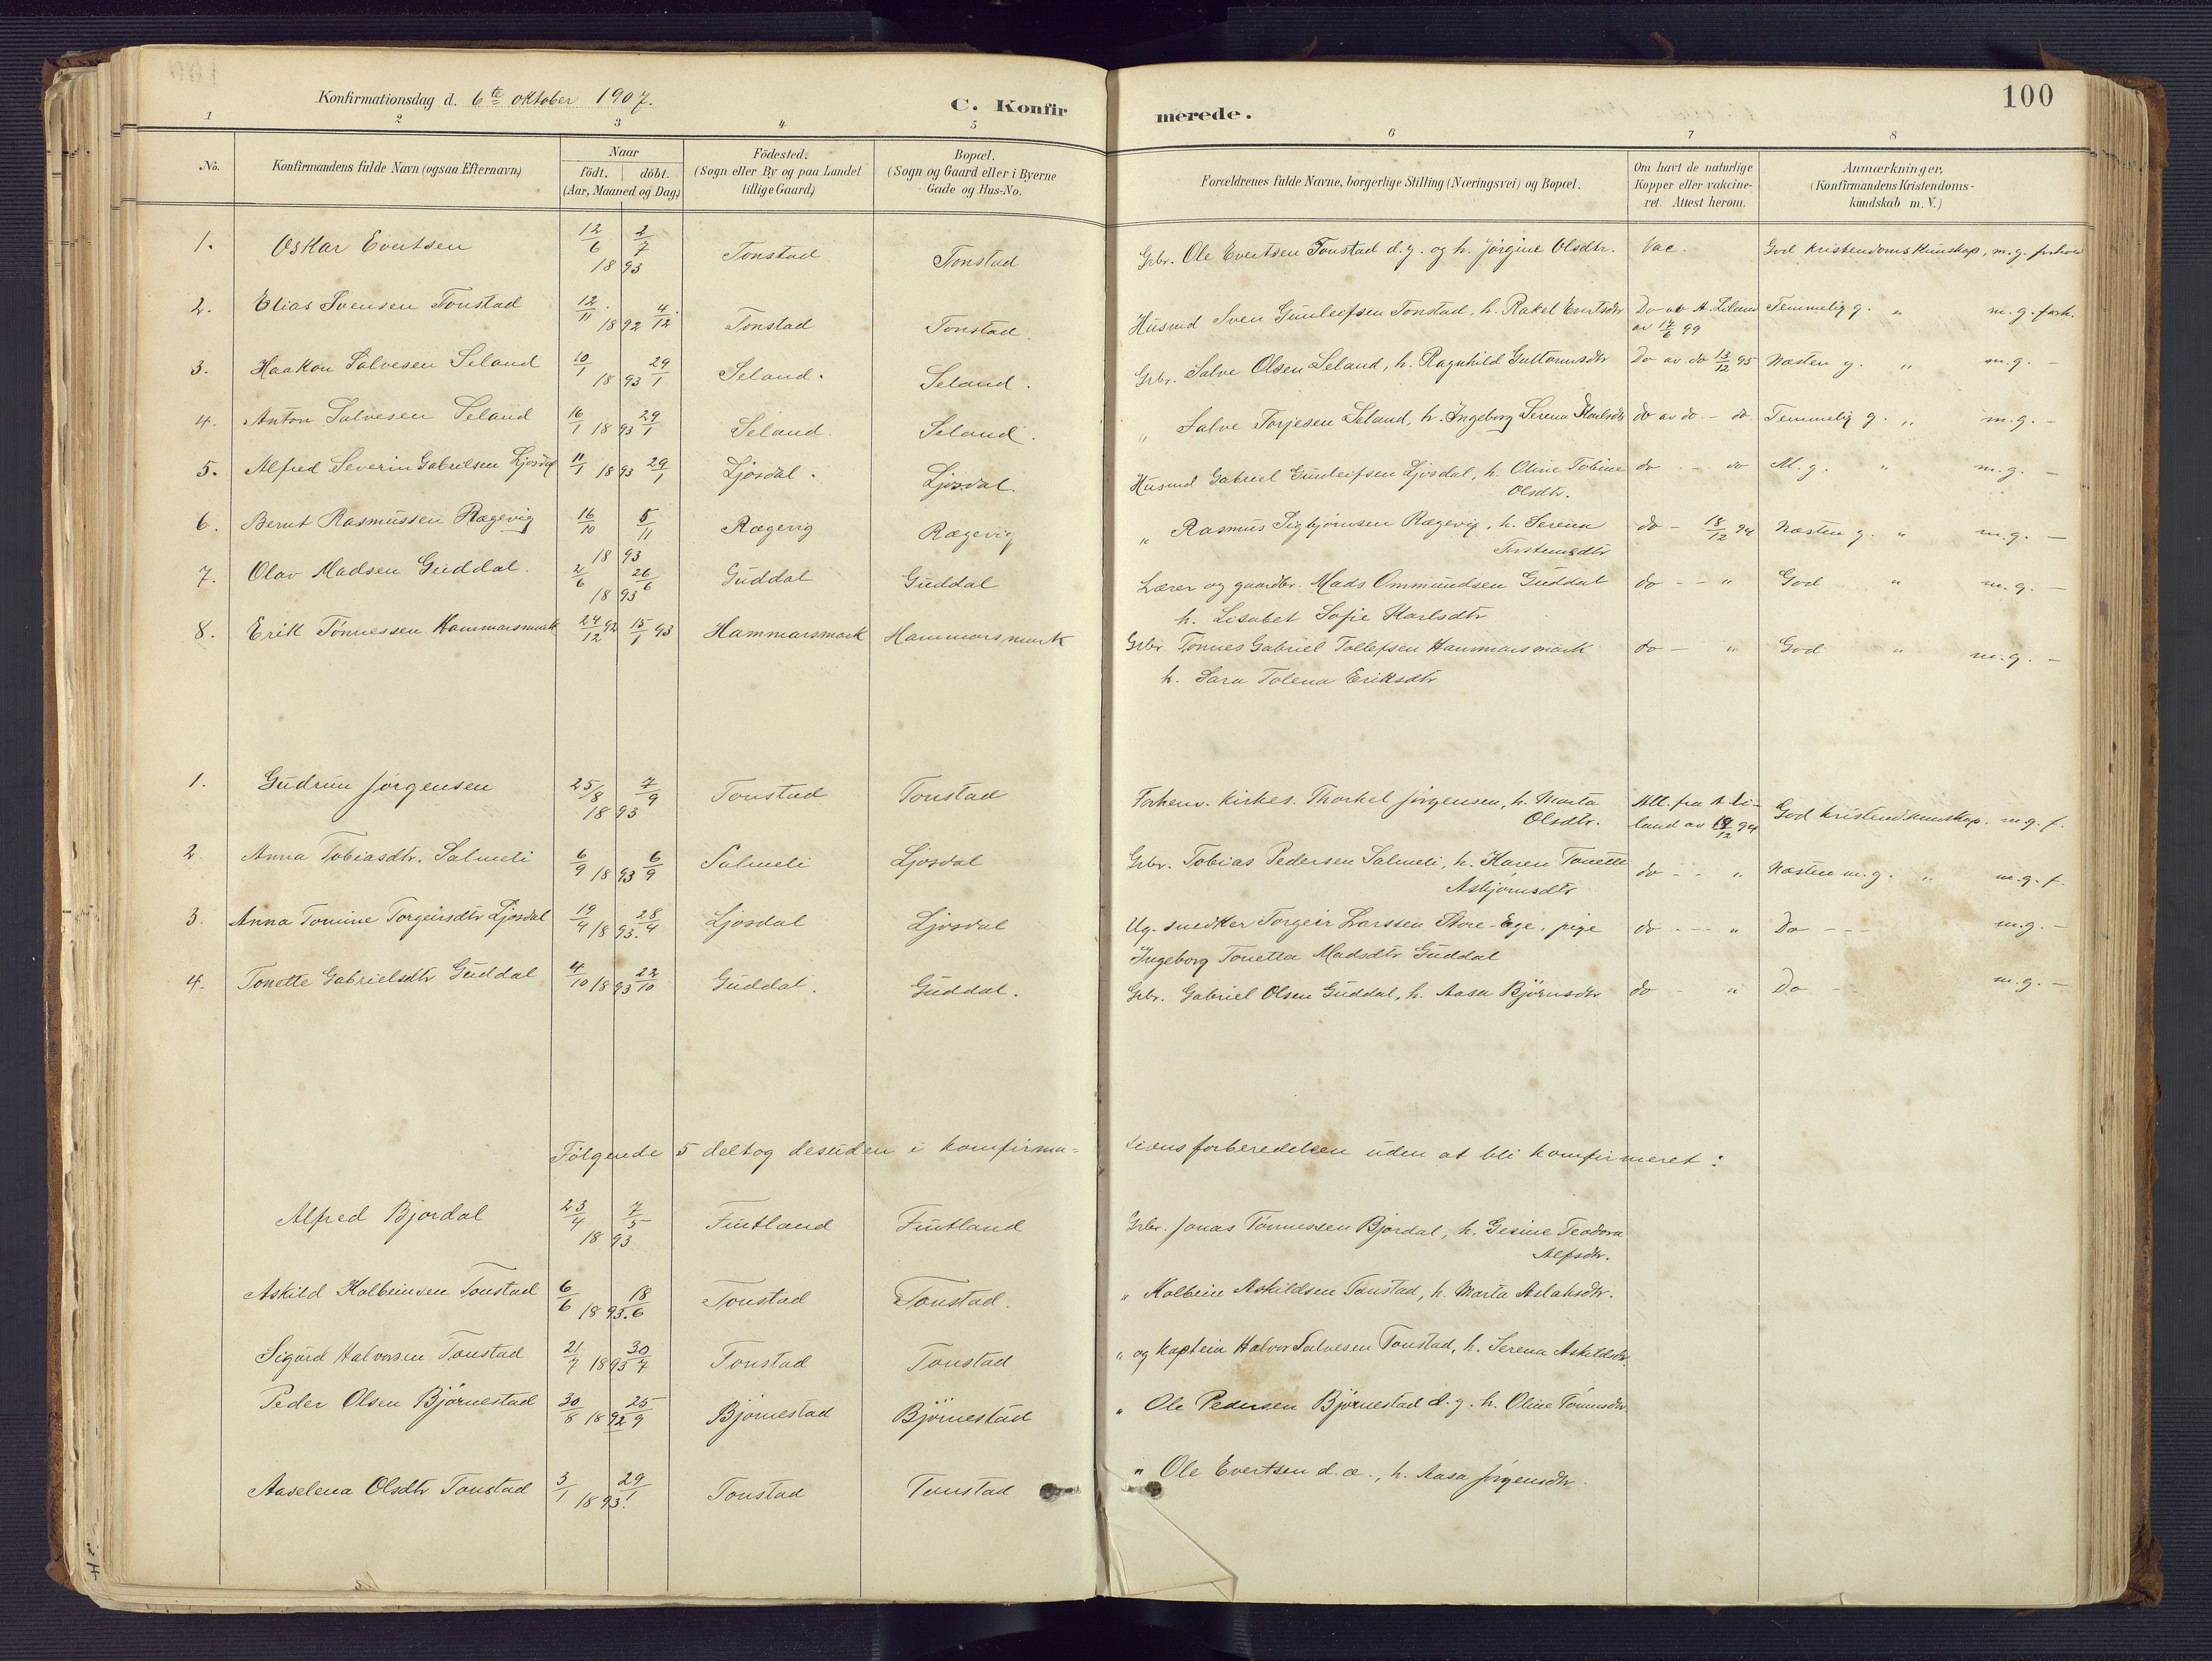 100
Konfirmationsdag d. 6te oktober 1907.
C. Konfirmerede.
1 2 3 4 5 6 7 8
No. | Konfirmandens fulde Navn (ogsaa Efternavn) | Naar födt. | döbt. (Aar, Maaned og Dag) | Födested. (Sogn eller By og paa Landet tillige Gaard) | Bopæl. (Sogn og Gaard eller i Byerne Gade og Hus-No. | Forældrenes fulde Navne, borgerlige Stilling (Næringsvei) og Bopæl. | Om havt de naturlige Kopper eller vakcineret. Attest herom. | Anmærkninger. (Konfirmandens Kristendomskundskab m. V.)
1. Oskar Evertsen 12/6 2/7 1893 Tonstad Tonstad Grbr. Ole Evertsen Tonstad d.y. og h. Jørgine Olsdtr. Vac. God kristendomskunskap, m.g. forhold
2. Elias Svensen Tonstad 12/11 1892 4/12 Tonstad Tonstad. Husmd Sven Gunleifsen Tonstad, h. Rakel Evertsdtr Do av A. Liland av 14/6 99 Temmelig g. " m.g. forh.
3. Haakon Salvesen Seland 10/1 1893 29/1 Seland. Seland. Grbr. Salve Olsen Seland, h. Ragnhild Guttormsdtr Do av do 13/12 95 Næsten g. " m.g. -
4. Anton Salvesen Seland 16/1 1893 29/1 Seland. Seland. " Salve Torjesen Seland, h. Ingeborg Serena Karlsdtr do av do. - do Temmelig g. " m.g. -
5. Alfred Severin Gabrielsen Ljosdal 11/1 1893 29/1 Ljosdal. Ljosdal. Husmd Gabriel Gunleifsen Ljosdal, h. Oline Tobine Olsdtr. do - - do M.g. " m.g. -
6. Bernt Rasmussen Rægevig 16/10 5/11 1893 Rægevig Rægevig " Rasmus Sigbjørnsen Rægevig, h. Serena Torstensdtr do - 18/12 94 Næsten g. " m.g. -
7. Olav Madsen Guddal. 2/6 26/6 1893 Guddal Guddal Lærer og gaardbr. Mads Ommundsen Guddal h. Lisabet Sofie Karlsdtr do - - " God " m.g. -
8. Erik Tønnessen Hammarsmark 24/12 92 15/1 93 Hammarsmark Hammarsmark Grbr. Tønnes Gabriel Tollefsen Hammarsmark h. Sara Tolena Eriksdtr do - " God " m.g. -
1. Gudrun Jørgensen 25/8 7/9 1893 Tonstad Tonstad Forhenv. kirkes. Thorkel Jørgensen, h. Marta Olsdtr. Att. fra A. Liland av 18/12 94 God kristendkunskap. m.g. f.
2. Anna Tobiasdtr. Salmeli 6/9 1893 6/9 Salmeli Ljosdal Grbr. Tobias Pedersen Salmeli, h. Karen Tonette Asbjørnsdtr do - - " Næsten m.g. " m.g. f.
3. Anna Tomine Torgeirsdtr Ljosdal 19/4 1893. 28/4 Ljosdal Ljosdal Ug. snedker Torgeir Larssen Store-Ege, pige Ingeborg Tonetta Madsdtr Guddal do - - - " Do - - - m.g. -
4. Tonette Gabrielsdtr Guddal 4/10 1893 22/10 Guddal. Guddal. Grbr. Gabriel Olsen Guddal, h. Aasa Bjørnsdtr do - " Do - m.g. -
Følgende 5 deltog desuden i komfirmationsforberedelsen uden at bli komfirmeret:
Alfred Bjordal 23/4 7/5 1893 Fintland Fintland Grbr. Jonas Tønnessen Bjordal, h. Gesine Teodora Alfsdtr.
Askild Kolbeinsen Tonstad 6/6 1893. 18/6 Tonstad Tonstad. " Kolbein Askildsen Tonstad, h. Marta Aslaksdtr.
Sigurd Halvorsen Tonstad 21/7 1893 30/7 Tonstad Tonstad " og kaptein Halvor Salvesen Tonstad, h. Serena Askildsdtr.
Peder Olsen Bjørnestad 30/8 1892 25/9 Bjørnestad Bjørnestad " Ole Pedersen Bjørnestad d.y. h. Oline Tønnesdtr.
Aaselena Olsdtr Tonstad 3/1 1893. 29/1 Tonstad Tonstad " Ole Evertsen d.æ., h. Aasa Jørgensdtr.